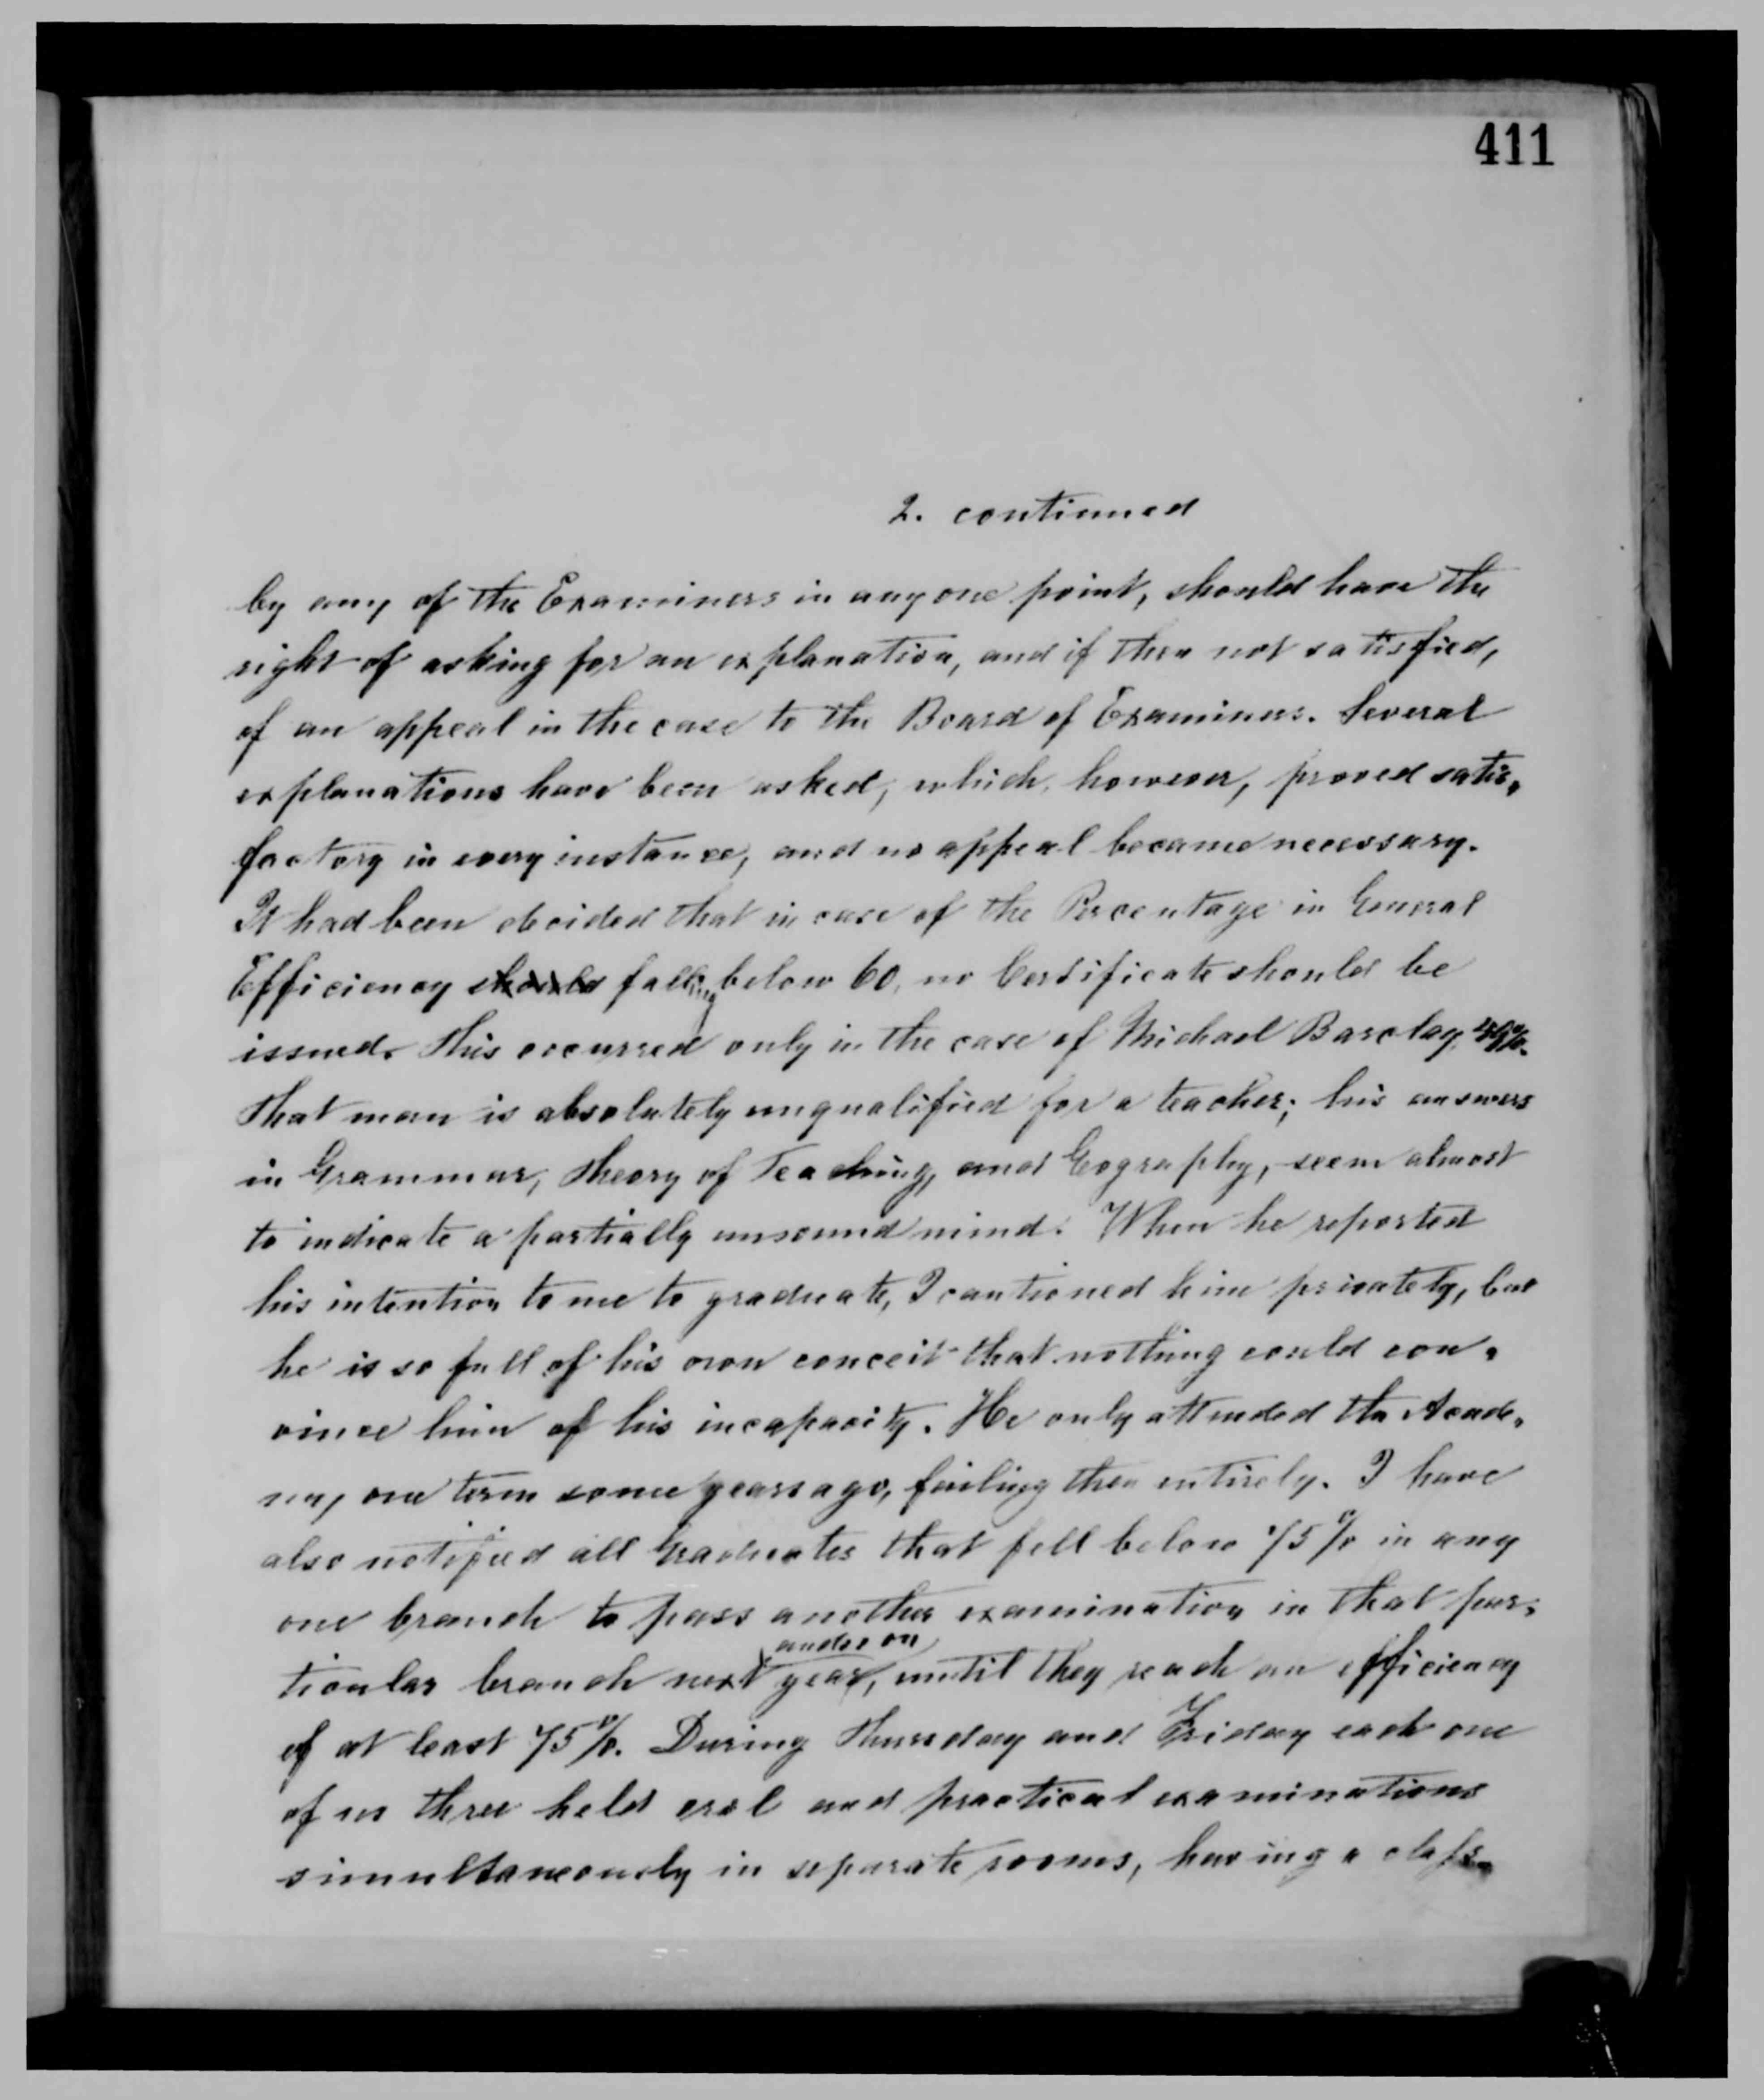 411
2. continued
by any of the Examiners in any one point, should have the
right of asking for an explanation, and if then not satisfied,
of an appeal in the case to the Board of Examiners. Several
explanations have been asked, which, however, proved satis-
factory in every instance, and no appeal became necessary.
It had been decided that in case of the Percentage in General
Efficiency should falling below 60, no Certificate should be
issued. This occurred only in the case of Michael Barclay,
That man is absolutely unqualified for a teacher; his answers
in Grammar, Theory of Teaching, and Geography, seem almost
to indicate a partially unsound mind. When he reported
his intention to me to graduate, I cautioned him privately, but
he is so full of his own conceit that nothing could con-
vince him of his incapacity. He only attended the Acade-
my one term some years ago, failing then entirely. I have
also notified all Graduates that fell below 75% in any
one branch to pass another examination in that par-
and so on
ticular branch next year, until they reach an efficiency
of at least 75%. During Thursday and Friday each one
of us three held oral and practical examinations
simultaneously in separate rooms, having a class